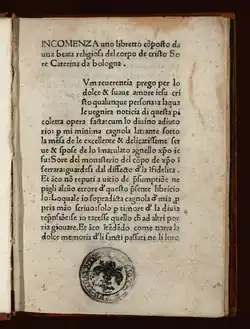 INCOMENZA uno libretto cõposto da
una beata religiosa del corpo de cristo Sore
Caterina da bologna.
Vm reuerentia prego per lo
dolce & suaue amore iesu cristo
qualunque persona la quale
uegnira noticia di questa picoletta
opera facta cum lo diuino adiutorio:
p mi minima cagnola latrante sotto
la mēsa de le excellente & delicatissime serue
& spose de lo imaculato agnello xp̄o iesu:
Sore del monasterio del cõpo de xp̄o i
ferrara: guardesi dal diffecto d' la ifidelita.
Et āco nō reputi a uicio de p̄sumptiōe ne
pigli alcūo errore d' questo p̄sente libricio
lo: Loquale io sopradicta cagnola d' mia p
pria māo scriuo: solo p timore d' la diuia
repr̄esiōe se io tacesse quello ch' ad altri poria
giouare. Et āco itēdēdo come narra la
dolce memoria d' li sancti passati ne li loro